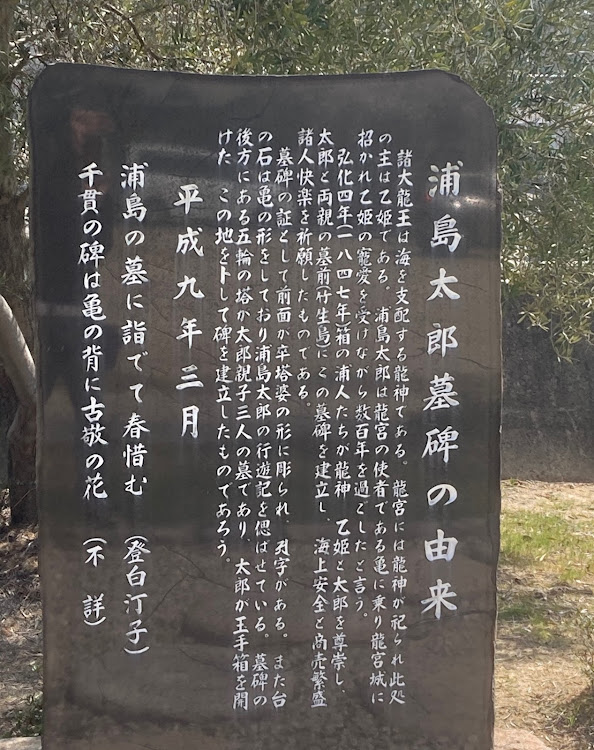 浦島太郎墓碑の由来
諸大龍王は海を支配する龍神である。龍宮には龍神が祀られ此処
の主は乙姫である。浦島太郎は龍宮の使者である亀に乗り龍宮城に
招かれ乙姫の寵愛を受けながら数百年を過ごしたと言う。
弘化四年(一八四七年箱の浦人たちが龍神、乙姫と太郎を尊崇し、
太郎と両親の墓前(竹生島にこの墓碑を建立し、海上安全と商売繁盛
諸人快楽を祈願したものである。
墓碑の証として前面が卒塔婆の形に彫られ、字がある。また台
の石は亀の形をしており浦島太郎の行遊記を偲ばせている。墓碑の
後方にある五輪の塔が太郎親子三人の墓であり、太郎が玉手箱を開
けた、この地を卜して碑を建立したものであろう。
平成九年三月
浦島の墓に詣でて春惜む (登白汀子)
千貫の碑は亀の背に古敬の花 (不詳)